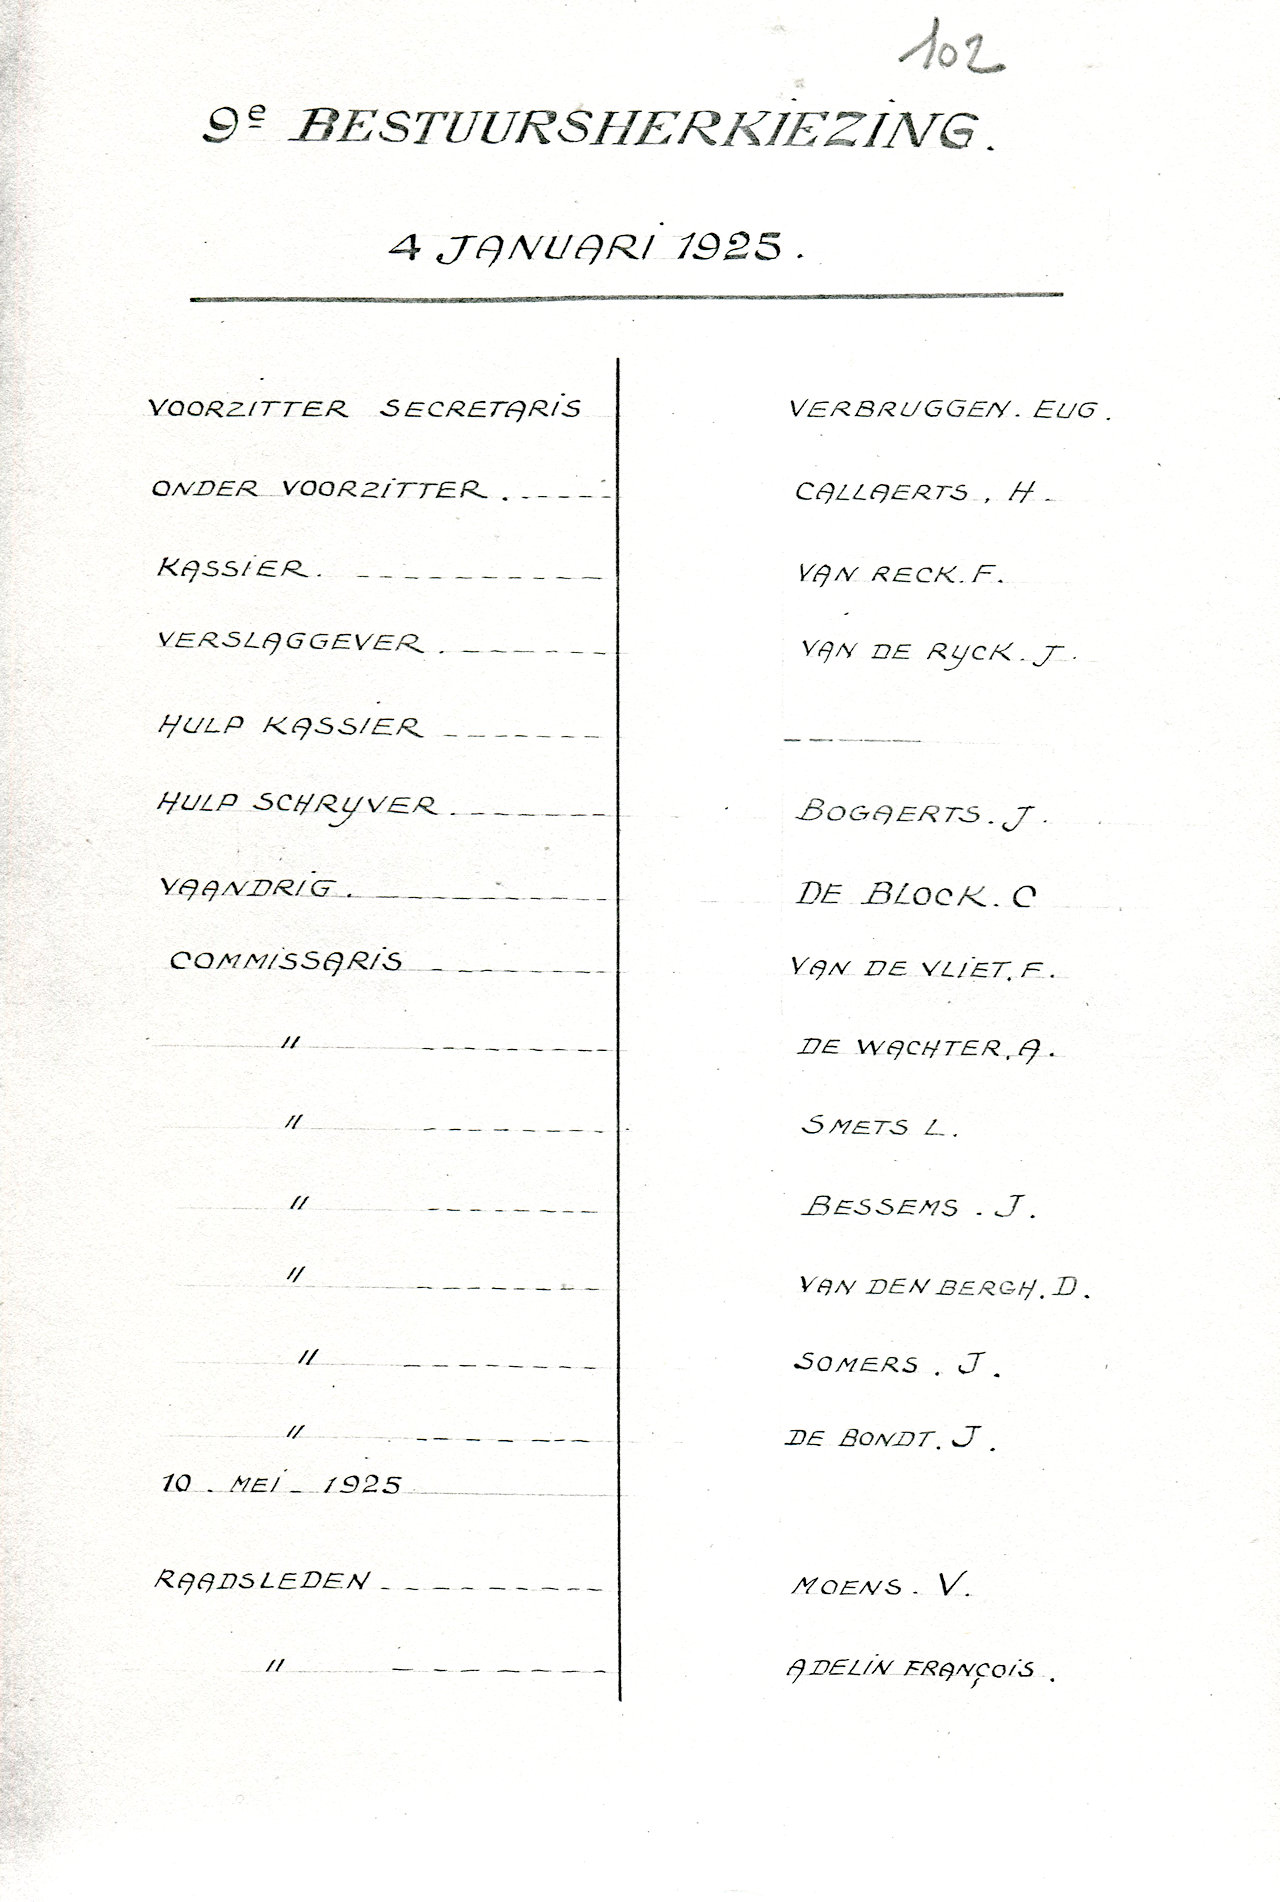 102
9e BESTUURSHERKIEZING.
4 JANUARI 1925.
VOORZITTER SECRETARIS VERBRUGGEN. EUG.
ONDER VOORZITTER. ----- CALLAERTS, H.
KASSIER. --------- VAN RECK. F.
VERSLAGGEVER. ------- VAN DE RYCK. J.
HULP KASSIER ------- -----
HULP SCHRYVER. ------- BOGAERTS. J.
VAANDRIG. ---------- DE BLOCK. C
COMMISSARIS ------- VAN DE VLIET. F.
" --------- DE WACHTER. A.
" --------- SMETS L.
" --------- BESSEMS. J.
" --------- VAN DEN BERGH. D.
" --------- SOMERS. J.
" --------- DE BONDT. J.
10. MEI - 1925
RAADSLEDEN --------- MOENS. V.
" ------- ADELIN FRANÇOIS.